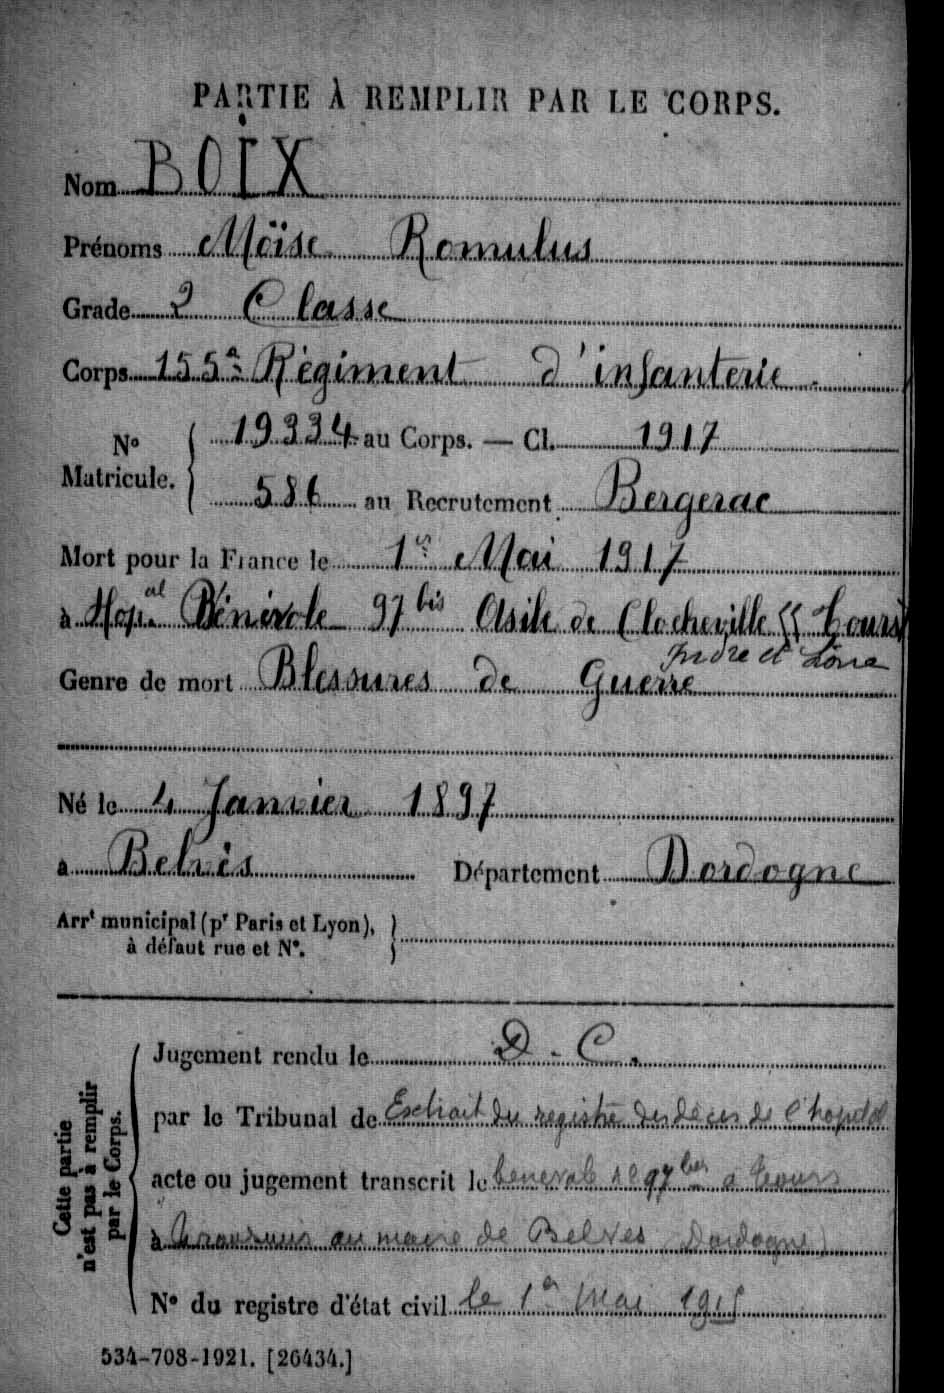 PARTIE À REMPLIR PAR LE CORPS.
Nom BOIX
Prénoms Moïse Romulus
Grade 2 Classe
Corps 155e Régiment d'infanterie.
N° Matricule. { 19334 au Corps. — Cl. 1917
586 au Recrutement Bergerac
Mort pour la France le 1er Mai 1917
à Hop.al Bénévole 97 bis Asile de Clocheville Tours
Indre et Loire
Genre de mort Blessures de Guerre
Né le 4 Janvier 1897
à Belvès Département Dordogne
Arrt municipal (pr Paris et Lyon),
à défaut rue et N°.
Cette partie
n'est pas à remplir
par le Corps.
Jugement rendu le D. C.
par le Tribunal de Extrait du registre des décès de l'hopital
acte ou jugement transcrit le bénévole n° 97 bis à Tours
à au maire de Belves (Dordogne)
N° du registre d'état civil le 1er Mai
534-708-1921. [26434.]